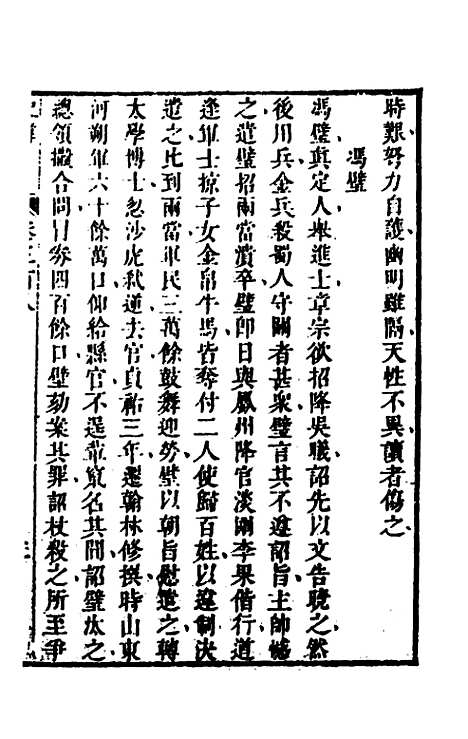 時艱努力自護幽明雖隔天性不異讀者傷之
馮璧
馮璧真定人舉進士章宗欲招降吳曦詔先以文告曉之然
後用兵金兵殺蜀人守關者甚衆璧言其不遵詔旨主帥憾
之遣璧招兩當潰卒璧卽日與鳳州降官淡剛李果偕行道
逢軍士掠子女金帛牛馬皆奪付二人使歸百姓以違制決
遣之比到兩當軍民三萬餘鼓舞迎勞璧以朝旨慰遣之轉
太學博士忽沙虎弒逆去官貞祐三年遷翰林修撰時山東
河朔軍六十餘萬口仰給縣官不逞輩竄名其間詔璧汰之
總領撒合問冒券四百餘口璧劾案其罪詔杖殺之所至爭